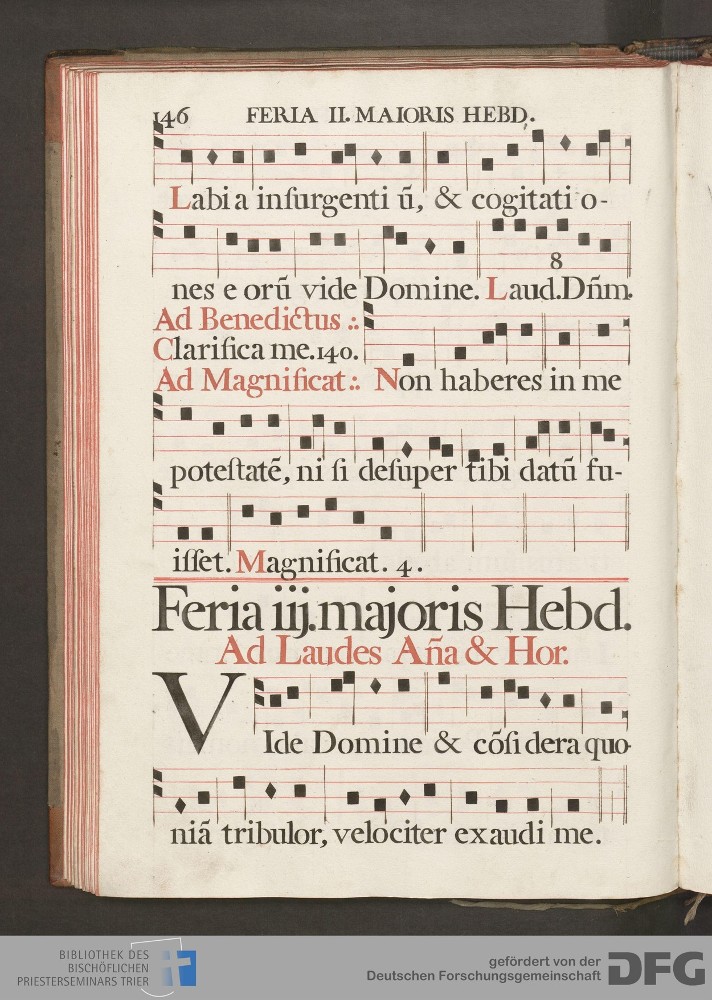 146 FERIA II. MAIORIS HEBD.
Labia inſurgenti ũ, & cogitati o-
8
nes e orũ vide Domine. Laud.Dñm.
Ad Benedictus :.
Clarifica me.140.
Ad Magnificat :. Non haberes in me
poteſtatẽ, ni ſi deſuper tibi datũ fu-
iſſet. Magnificat. 4.
Feria iij. majoris Hebd.
Ad Laudes Aña & Hor.
VIde Domine & cõſi dera quo-
niã tribulor, velociter exaudi me.
BIBLIOTHEK DES
BISCHÖFLICHEN
PRIESTERSEMINARS TRIER
gefördert von der
Deutschen Forschungsgemeinschaft
DFG